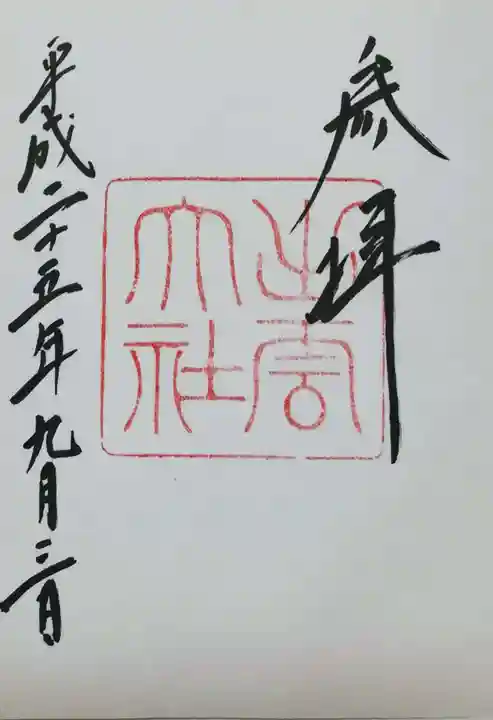 参拝
出雲
大社
平成二十五年九月三日